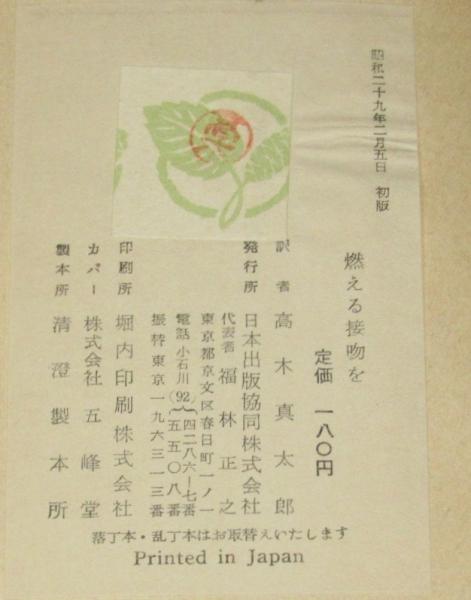 昭和二十九年二月五日 初版
燃える接吻を
定価 一八〇円
訳者 高木真太郎
発行所 日本出版協同株式会社
代表者 福林正之
東京都京文区春日町一ノ一
電話小石川(92){四二八六―七番
五五〇八番
振替東京一九六三一三番
印刷所 堀内印刷株式会社
カバー 株式会社五峰堂
製本所 清澄製本所
落丁本・乱丁本はお取替えいたします
Printed in Japan